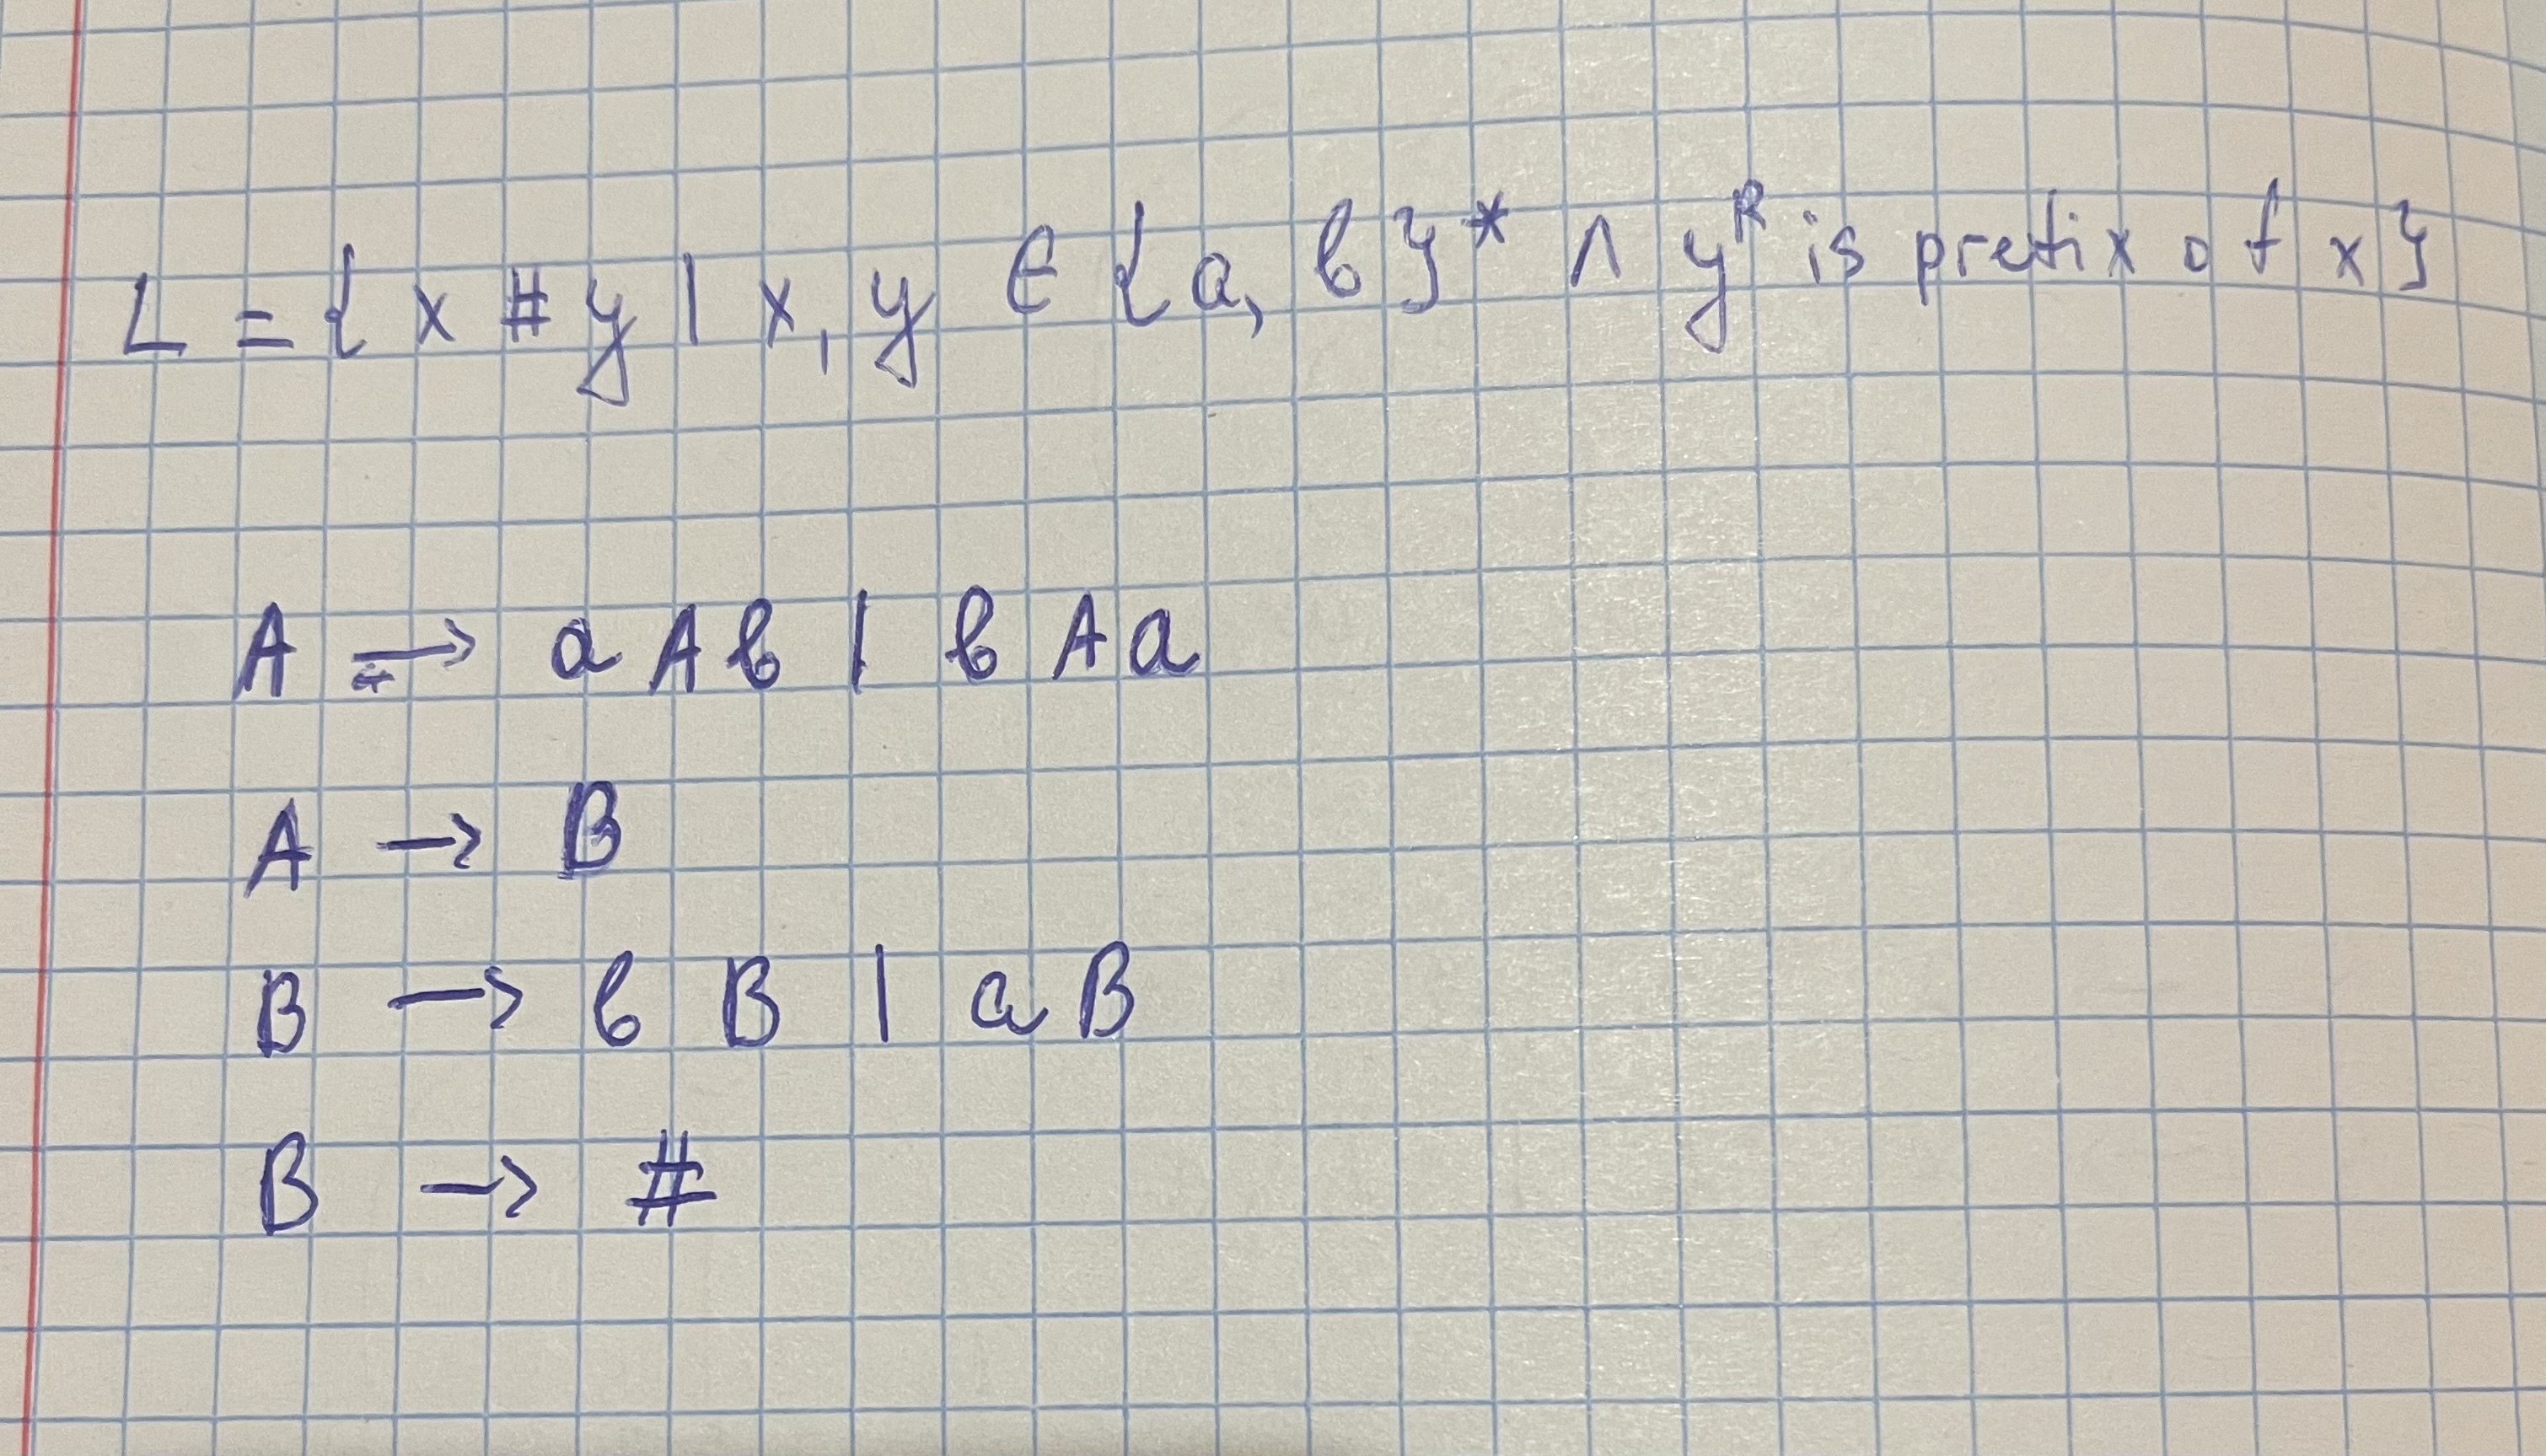 L = { x # y | x, y ∈ {a, b}* ∧ y^R is prefix of x}
A → a A b | b A a
A → B
B → b B | a B
B → #